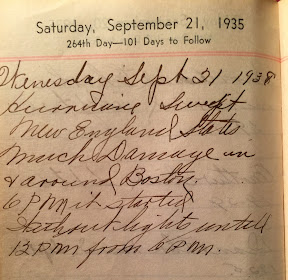 Saturday, September 21, 1935
264th Day—101 Days to Follow
Wenesday Sept 21 1938
Hurricane Swept
New England States
Much Damage in
& around Boston.
6 P M it started
Without lights untill
12 P M from 6 P M.